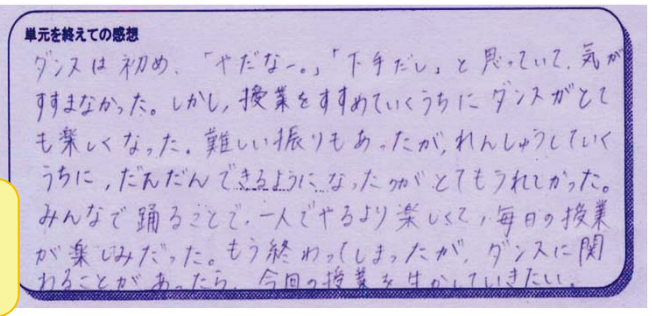 単元を終えての感想
ダンスは初め、「やだなー。」「下手だし」と思っていて、気が
すすまなかった。しかし、授業をすすめていくうちにダンスがとて
も楽しくなった。難しい振りもあったが、れんしゅうしていく
うちに、だんだんできるようになったのがとてもうれしかった。
みんなで踊ることで、一人でやるより楽しくて、毎日の授業
が楽しみだった。もう終わってしまったが、ダンスに関
わることがあったら、今回の授業を生かしていきたい。